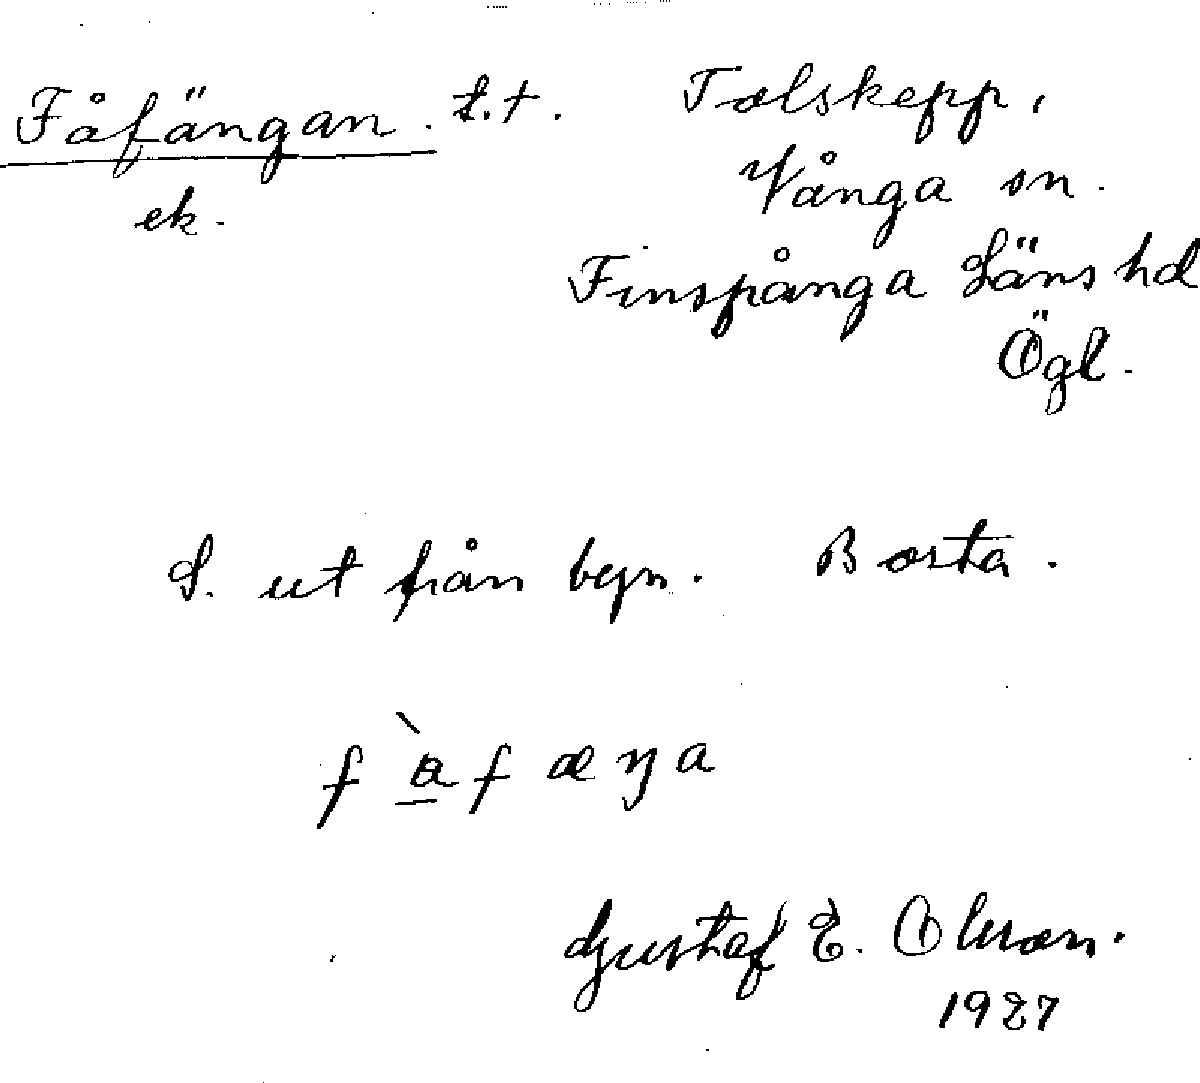 Fåfängan . t.t. Tolskepp,
ek. Vånga sn.
Finspånga Läns hd
Ögl.
S. ut från byn. Borta.
f à f æ ŋ a
Gustaf E. Olsson.
1927